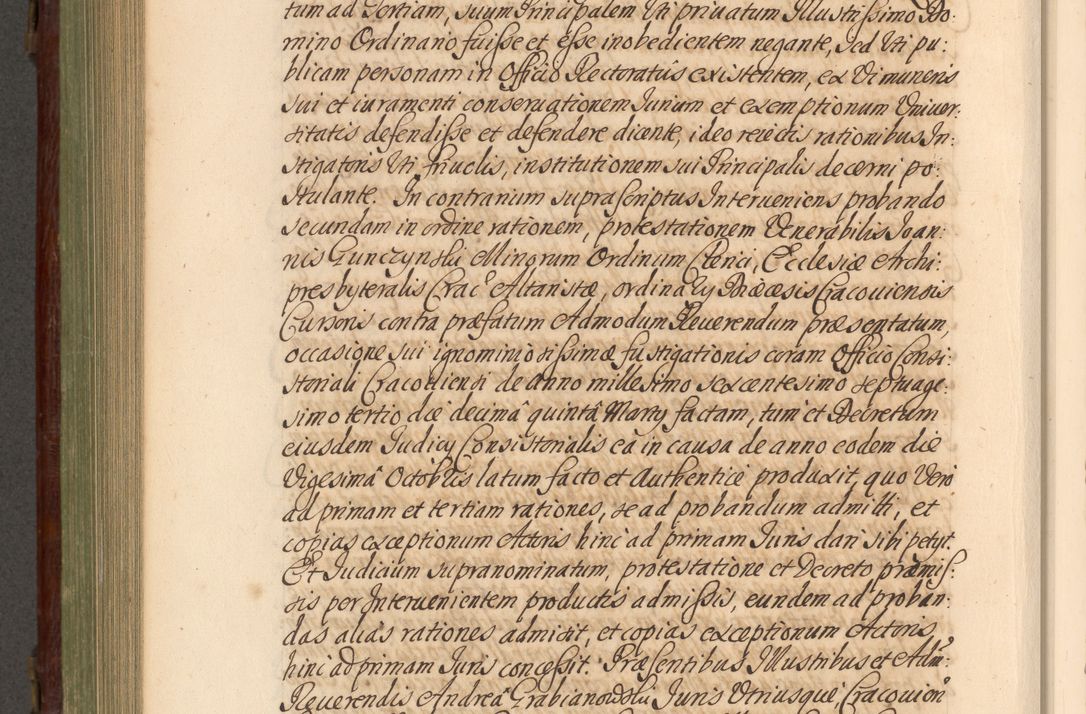 tum ad Tertiam, suum Principalem Uti priuatum Illustrissimo Do:
mino Ordinario fuisse et esse inobedientem negante, sed Uti pu:
blicam personam in Officio Rectoratûs existentem, ex Vi muneris
sui et iuramenti conseruationem Iurium et exemptionum Vniuer:
sitatis defendisse et defendere dicente, ideo reiectis rationibus In:
stigatoris Uti friuolis, institutionem sui Principalis decerni po:
stulante. In contrarium suprascriptus Interueniens probando
secundam in ordine rationem, protestationem Venerabilis Ioan:
nis Gunczynski Minorum Ordinum Clerici, Ecclesiæ Archi:
presbyteralis Crac: Altaristæ, ordinarij Diœcesis Cracouiensis
Cursoris contra præfatum Admodum Reuerendum præsentatum,
occasione sui ignominiosissimæ fustigationis coram Officio Consi:
storiali Cracouiensi de anno millesimo sexcentesimo septuage:
simo tertio die decimâ quintâ Martij factam, tum et Decretum
eiusdem Iudicij Consistorialis eâ in causa de anno eodem die
Vigesimâ Octobris latum facto et Authentice produxit, quo Vero
ad primam et tertiam rationes, se ad probandum admitti, et
copias exceptionum Actoris hinc ad primam Iuris dari sibi petyt.
Et Iudicium supranominatum, protestatione et Decreto præmis:
sis per Interuenientem productis admissis, eundem ad proban:
das alias rationes admisit, et copias exceptionum Actoris
hinc ad primam Iuris concessit. Præsentibus Illustribus et Adm:
Reuerendis Andreâ Grabianowski Iuris Vtriusque, Cracouien: